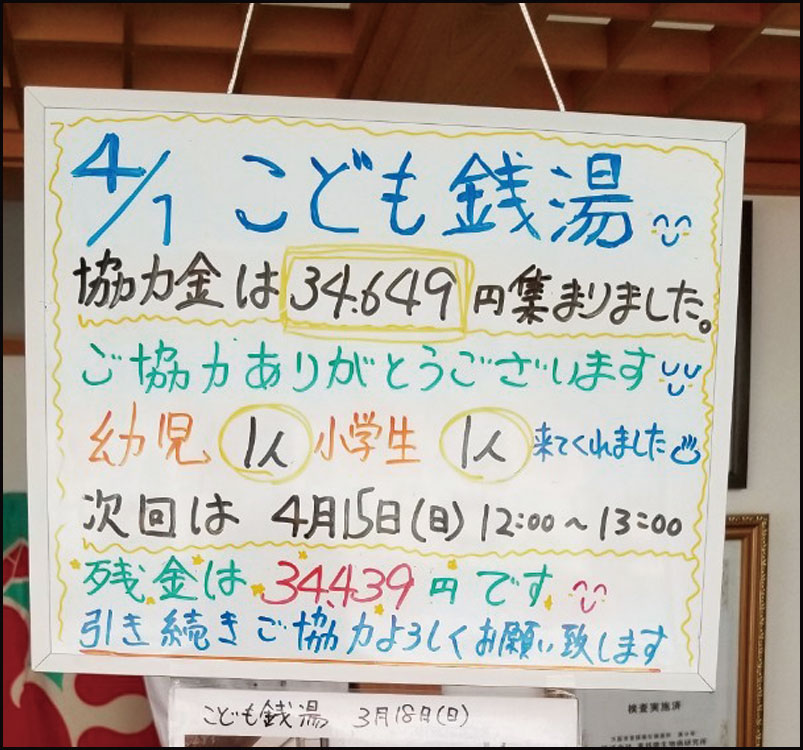 4/1 こども銭湯
協力金は 34.649 円集まりました。
ご協力ありがとうございます
幼児 1人 小学生 1人 来てくれました
次回は 4月15日(日) 12:00~13:00
残金は 34.439 円です
引き続きご協力よろしくお願い致します
こども銭湯 3月18日(日)
検査実施済